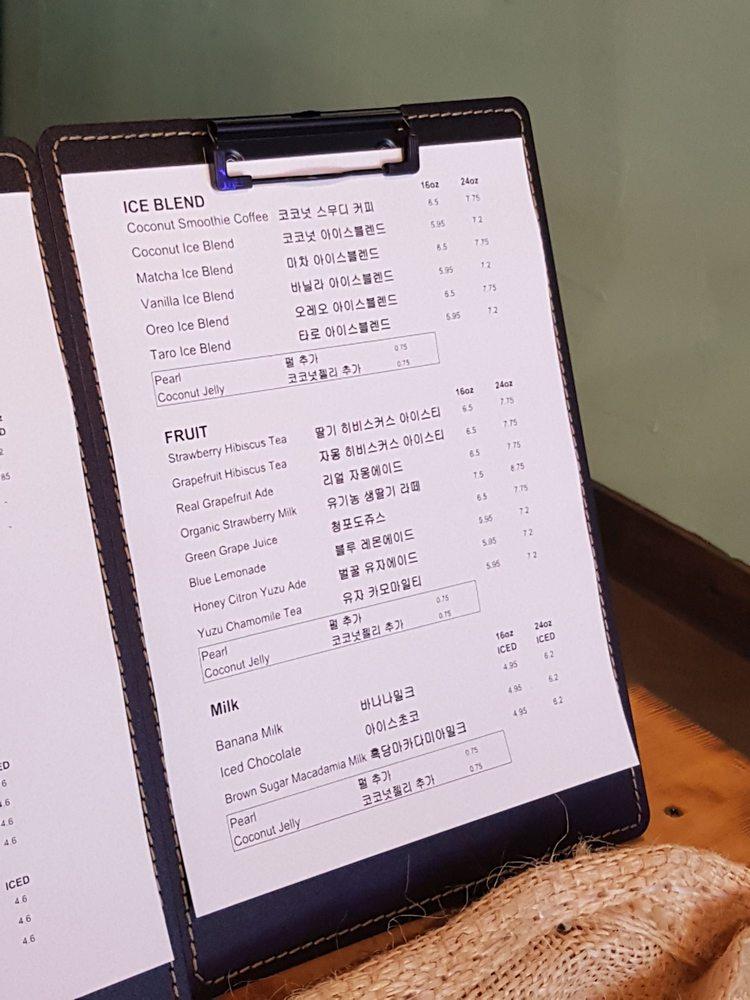 ICE BLEND 16oz 24oz
Coconut Smoothie Coffee 코코넛 스무디 커피 6.5 7.75
Coconut Ice Blend 코코넛 아이스블렌드 5.95 7.2
Matcha Ice Blend 마차 아이스블렌드 6.5 7.75
Vanilla Ice Blend 바닐라 아이스블렌드 5.95 7.2
Oreo Ice Blend 오레오 아이스블렌드 6.5 7.75
Taro Ice Blend 타로 아이스블렌드 5.95 7.2
Pearl 펄 추가 0.75
Coconut Jelly 코코넛젤리 추가 0.75
FRUIT 16oz 24oz
Strawberry Hibiscus Tea 딸기 히비스커스 아이스티 6.5 7.75
Grapefruit Hibiscus Tea 자몽 히비스커스 아이스티 6.5 7.75
Real Grapefruit Ade 리얼 자몽에이드 6.5 7.75
Organic Strawberry Milk 유기농 생딸기 라떼 7.5 8.75
Green Grape Juice 청포도쥬스 6.5 7.75
Blue Lemonade 블루 레몬에이드 5.95 7.2
Honey Citron Yuzu Ade 벌꿀 유자에이드 5.95 7.2
Yuzu Chamomile Tea 유자 카모마일티 5.95 7.2
Pearl 펄 추가 0.75
Coconut Jelly 코코넛젤리 추가 0.75
16oz 24oz
Milk ICED ICED
Banana Milk 바나나밀크 4.95 6.2
Iced Chocolate 아이스초코 4.95 6.2
Brown Sugar Macadamia Milk 흑당마카다미아밀크 4.95 6.2
Pearl 펄 추가 0.75
Coconut Jelly 코코넛젤리 추가 0.75
4.6
4.6
4.6
ICED
4.6
4.6
4.6